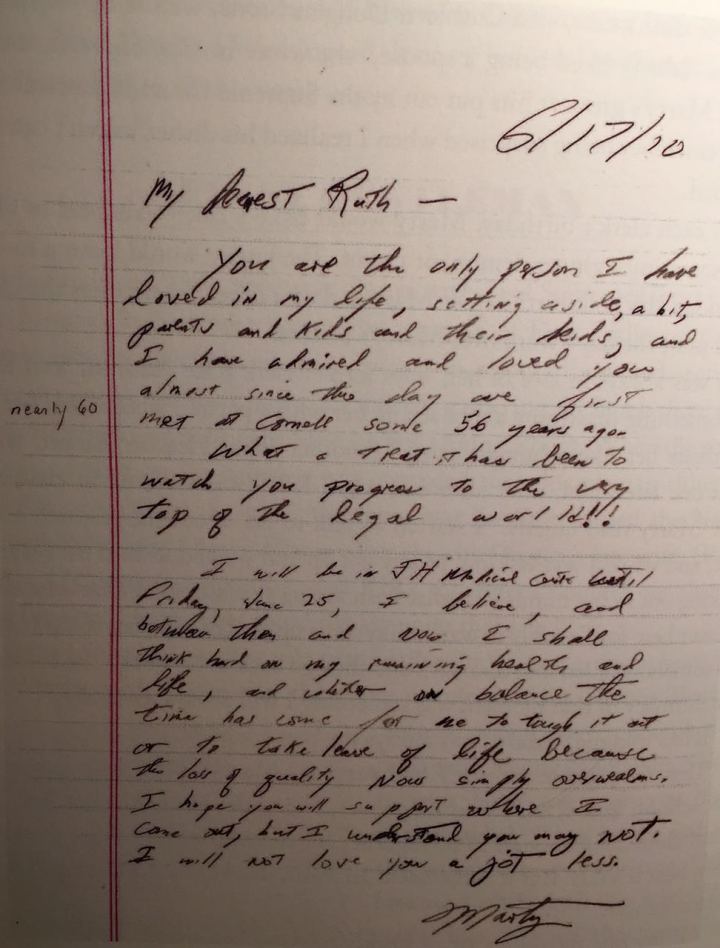 6/17/10
My Dearest Ruth —
You are the only person I have
loved in my life, setting aside, a bit,
parents and kids and their kids, and
I have admired and loved you
almost since the day we first
met at Cornell some 56 years ago.
nearly 60
What a treat it has been to
watch you progress to the very
top of the legal world!!
I will be in JH Medical Center until
Friday, June 25, I believe, and
between then and now I shall
think hard on my remaining health and
life, and whether on balance the
time has come for me to tough it out
or to take leave of life because
the loss of quality now simply overwhelms.
I hope you will support where I
come out, but I understand you may not.
I will not love you a jot less.
Marty